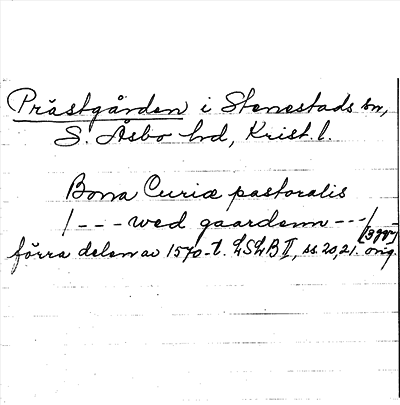 Prästgården i Stenestads sn,
S. Åsbo hd, Krist. l.
Bona Curiæ pastoralis
/--- wed gaardenn ---/ [3 ggr]
förra delen av 1570-t. LSLB II, ss. 20, 21. orig.